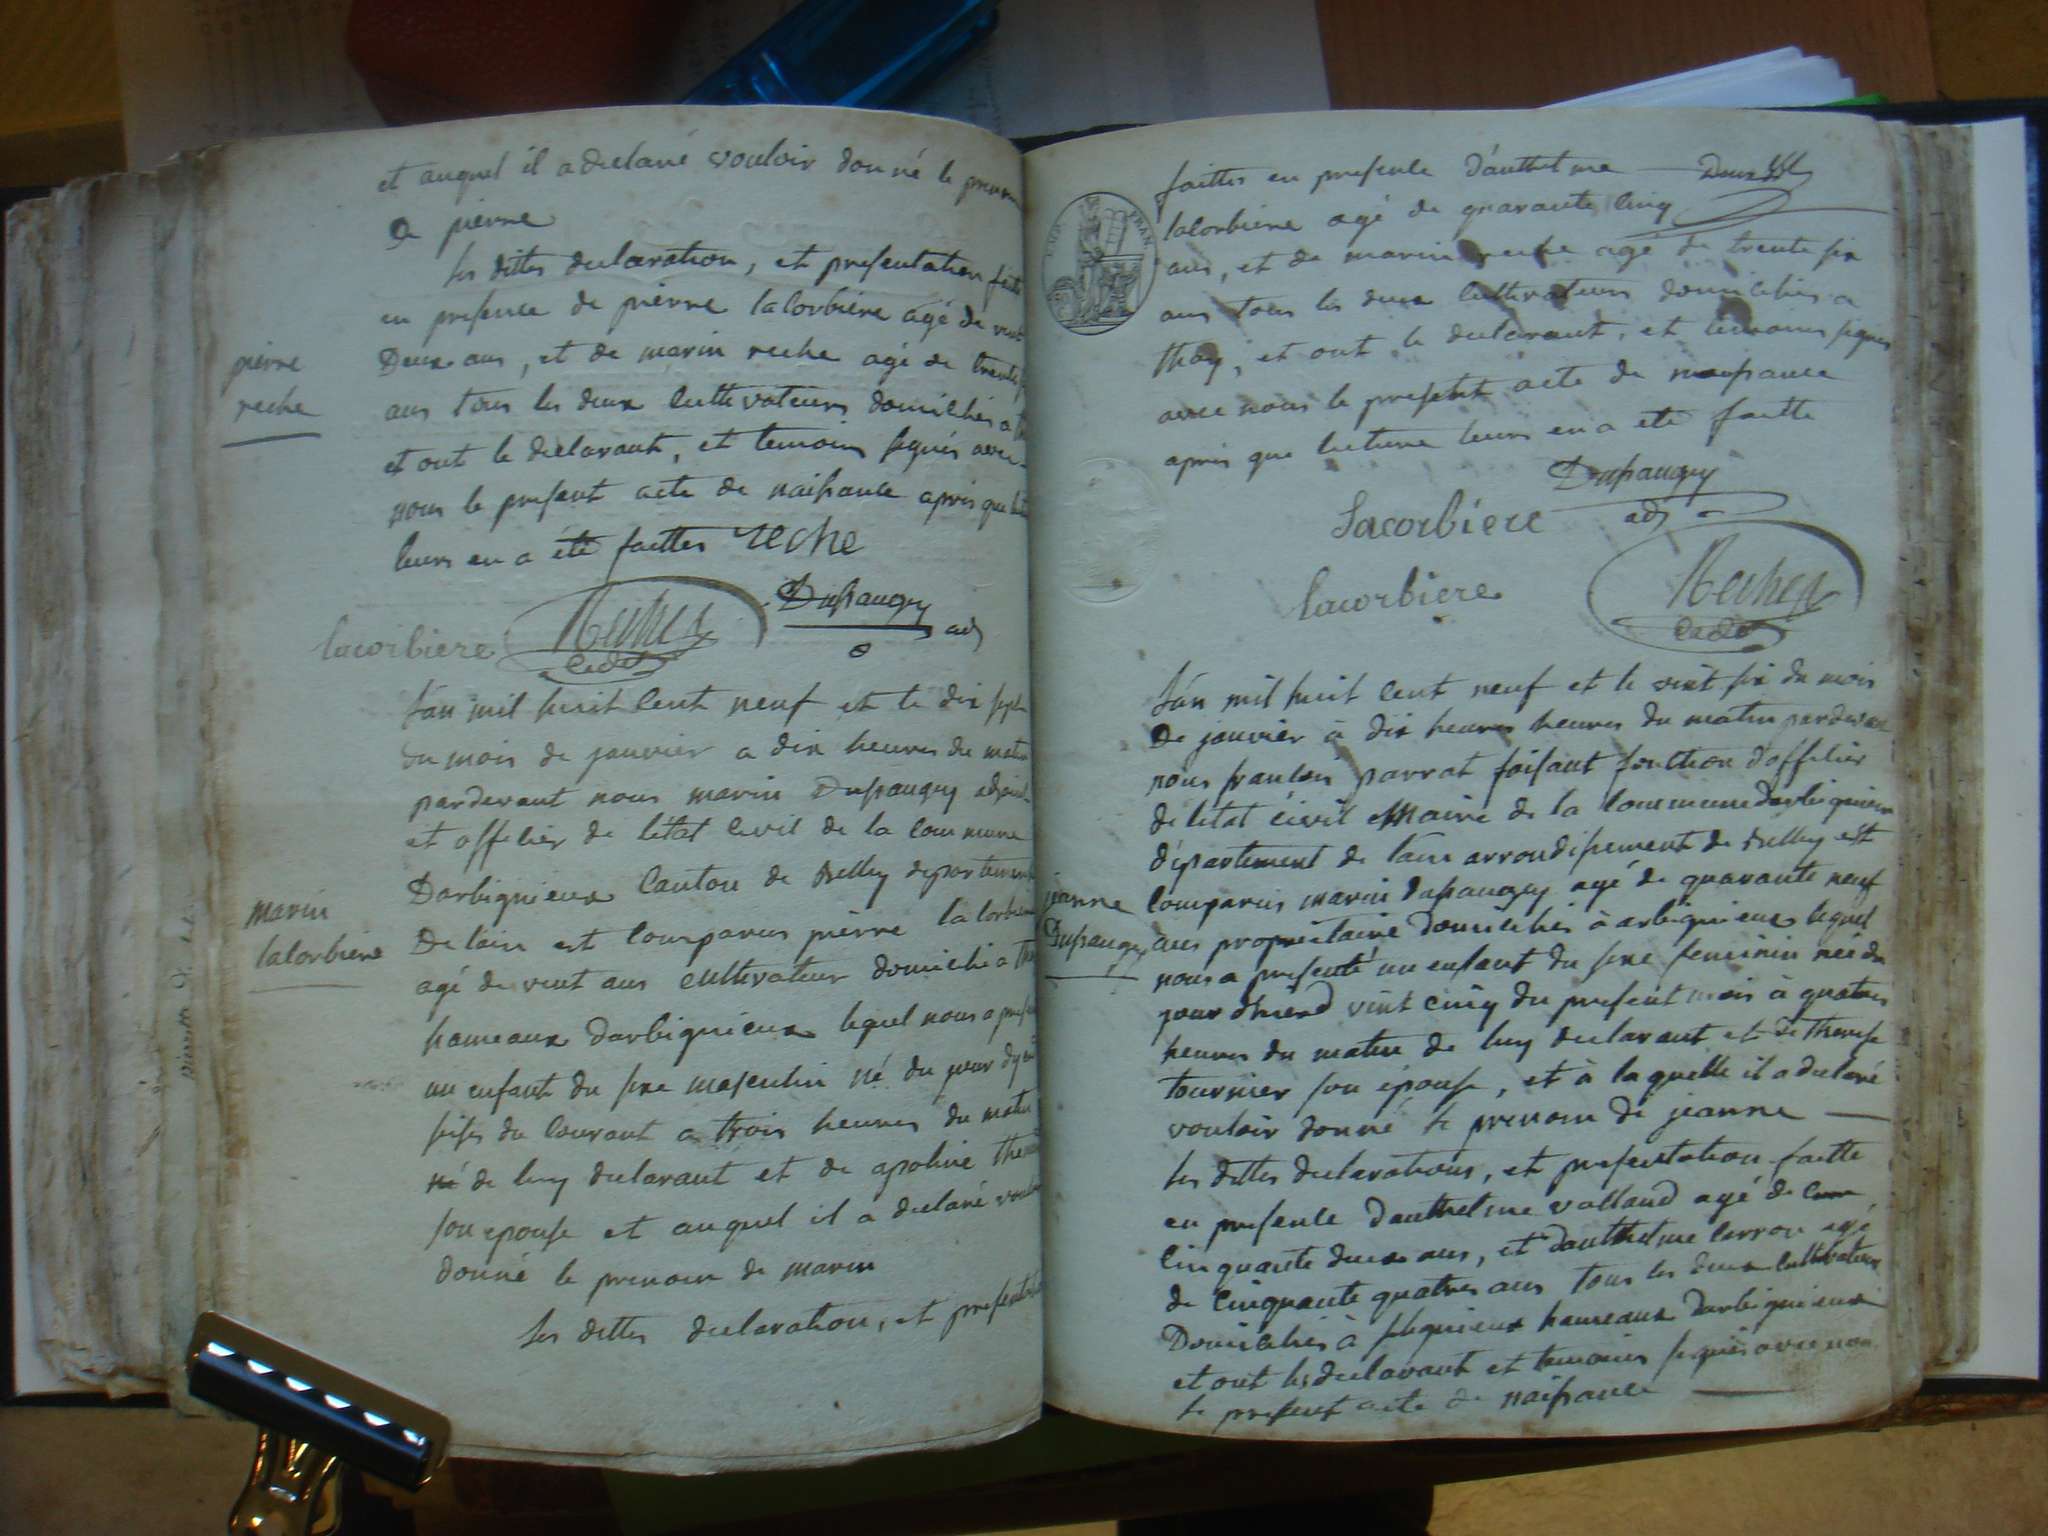 et auquel il a declaré vouloir donné le prenom
de pierre
les dittes declaration, et presentation faite
en presence de pierre lacorbiere agé de vint
Deux ans, et de marin reche agé de trente
ans tous les deux cultivateurs domiciliés a
et ont le declarant, et temoins signés avec
nous le present acte de naissance apres que
leurs en a été faittes reche
pierre
reche
lacorbiere Dupaugey adj
L'an mil huit cent neuf et le dix sept
du mois de janvier a dix heures du matin
pardevant nous marin Dupaugey adjoint
et officier de l'état civil de la commune
Darbignieux Canton de Belley departement
De lain est comparus pierre lacorbiere
agé de vint ans cultivateur domicilié a
hameaux darbignieux lequel nous a presenté
un enfant du sexe masculin né du jour dyer
seise du courant a trois heures du matin
né de luy declarant et de apoline
son epouse et auquel il a declaré vouloir
donné le prenom de marin
les dittes declaration, et presentation
marin
lacorbiere
faittes en presence d'anthelme
lacorbiere agé de quarante cinq
ans, et de marin reche agé de trente six
ans tous les deux cultivateurs domiciliés a
thoy, et ont le declarant, et temoins signés
avec nous le present acte de naissance
apres que lecture leurs en a eté faitte
Dupaugey
lacorbiere adj
lacorbiere
L'an mil huit cent neuf et le vint six du mois
De janvier à dix heures heures du matin pardevant
nous francois parrat faisant fonction d'officier
de letat civil Maire de la commune darbignieux
departement de l'ain arrondissement de Belley est
comparus marin dupaugey agé de quarante neuf
ans propriétaire domicilié à arbignieux lequel
nous a presenté un enfant du sexe feminin née du
jour dhierd vint cinq du present mois à quatres
heures du matin de luy declarant et de therese
tournier son épouse, et à laquelle il a declaré
vouloir donné le prenom de jeanne
les dittes declarations, et presentation faitte
en presence danthelme volland agé de
cinquante deux ans, et danthelme carron agé
de cinquante quatres ans tous les deux cultivateurs
Domiciliés à peygnieux hameaux darbignieux
et ont les declarant et temoins signés avec nous
le present acte de naissance
jeanne
Dupaugey